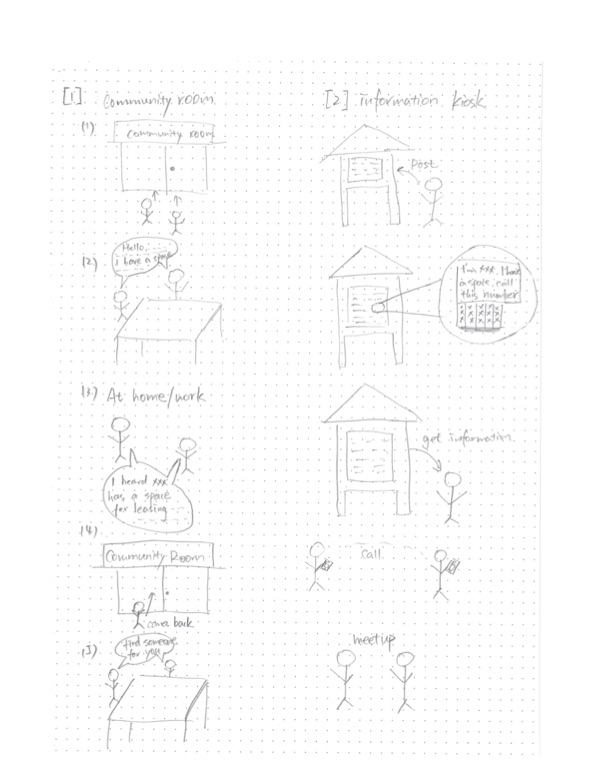 [1] Community room
(1)
Community room
(2)
Hello,
i have a
(3) At home/work
I heard xxx
has a space
for leasing
(4)
Community Room
come back
(5)
Find someone
for you
[2] information kiosk
Post
I'm xxx. I have
a space. call
this number
x x x x x
x x x x x
x x x x x
get information
Call
meet up